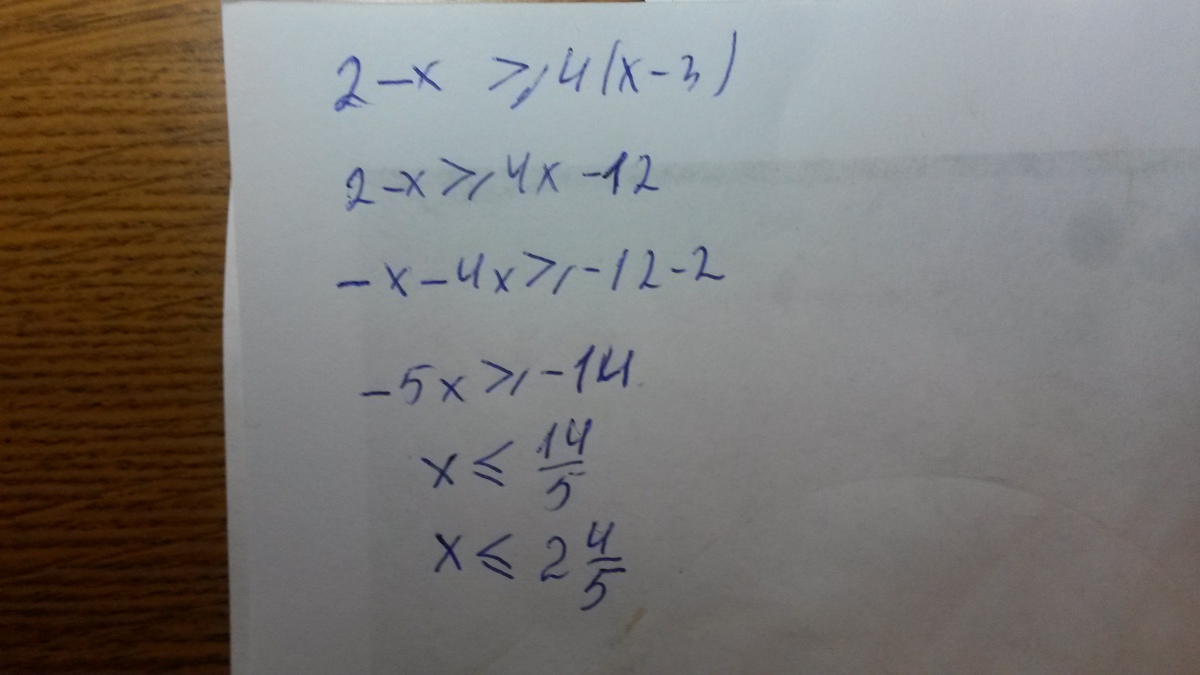 2-x ⩾ 4(x-3)
2-x ⩾ 4x-12
-x-4x ⩾ -12-2
-5x ⩾ -14
x ≤ 14/5
x ≤ 2 4/5